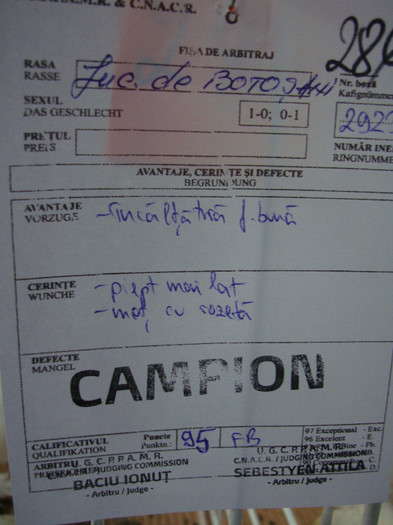 & C.N.A.C.R.
FIȘA DE ARBITRAJ
286
RASA
RASSE
Juc. de BOTOȘANI
Nr. boxă
Käfignummer
SEXUL
DAS GESCHLECHT
1-0; 0-1
292
PREȚUL
PREIS
NUMĂR INE
RINGNUMME
AVANTAJE, CERINȚE ȘI DEFECTE
BEGRUNDUNG
AVANTAJE
VORZUGE
- încălțătură f. bună
CERINȚE
WUNCHE
- piept mai lat
- moț cu rozetă
DEFECTE
MANGEL
CAMPION
CALIFICATIVUL
QUALIFIKATION
Puncte
Punkte:
95
FB
97 Exceptional - Exc.
96 Excelent - E.
ARBITRU U. G. C. P. P. A. M. R.
C.N.A.C.R. / JUDGING COMMISSION
BACIU IONUȚ
- Arbitru / Judge -
U. G. C. P. P. A. M. R.
C.N.A.C.R. / JUDGING COMMISSION
SEBESTYEN ATTILA
- Arbitru / Judge -